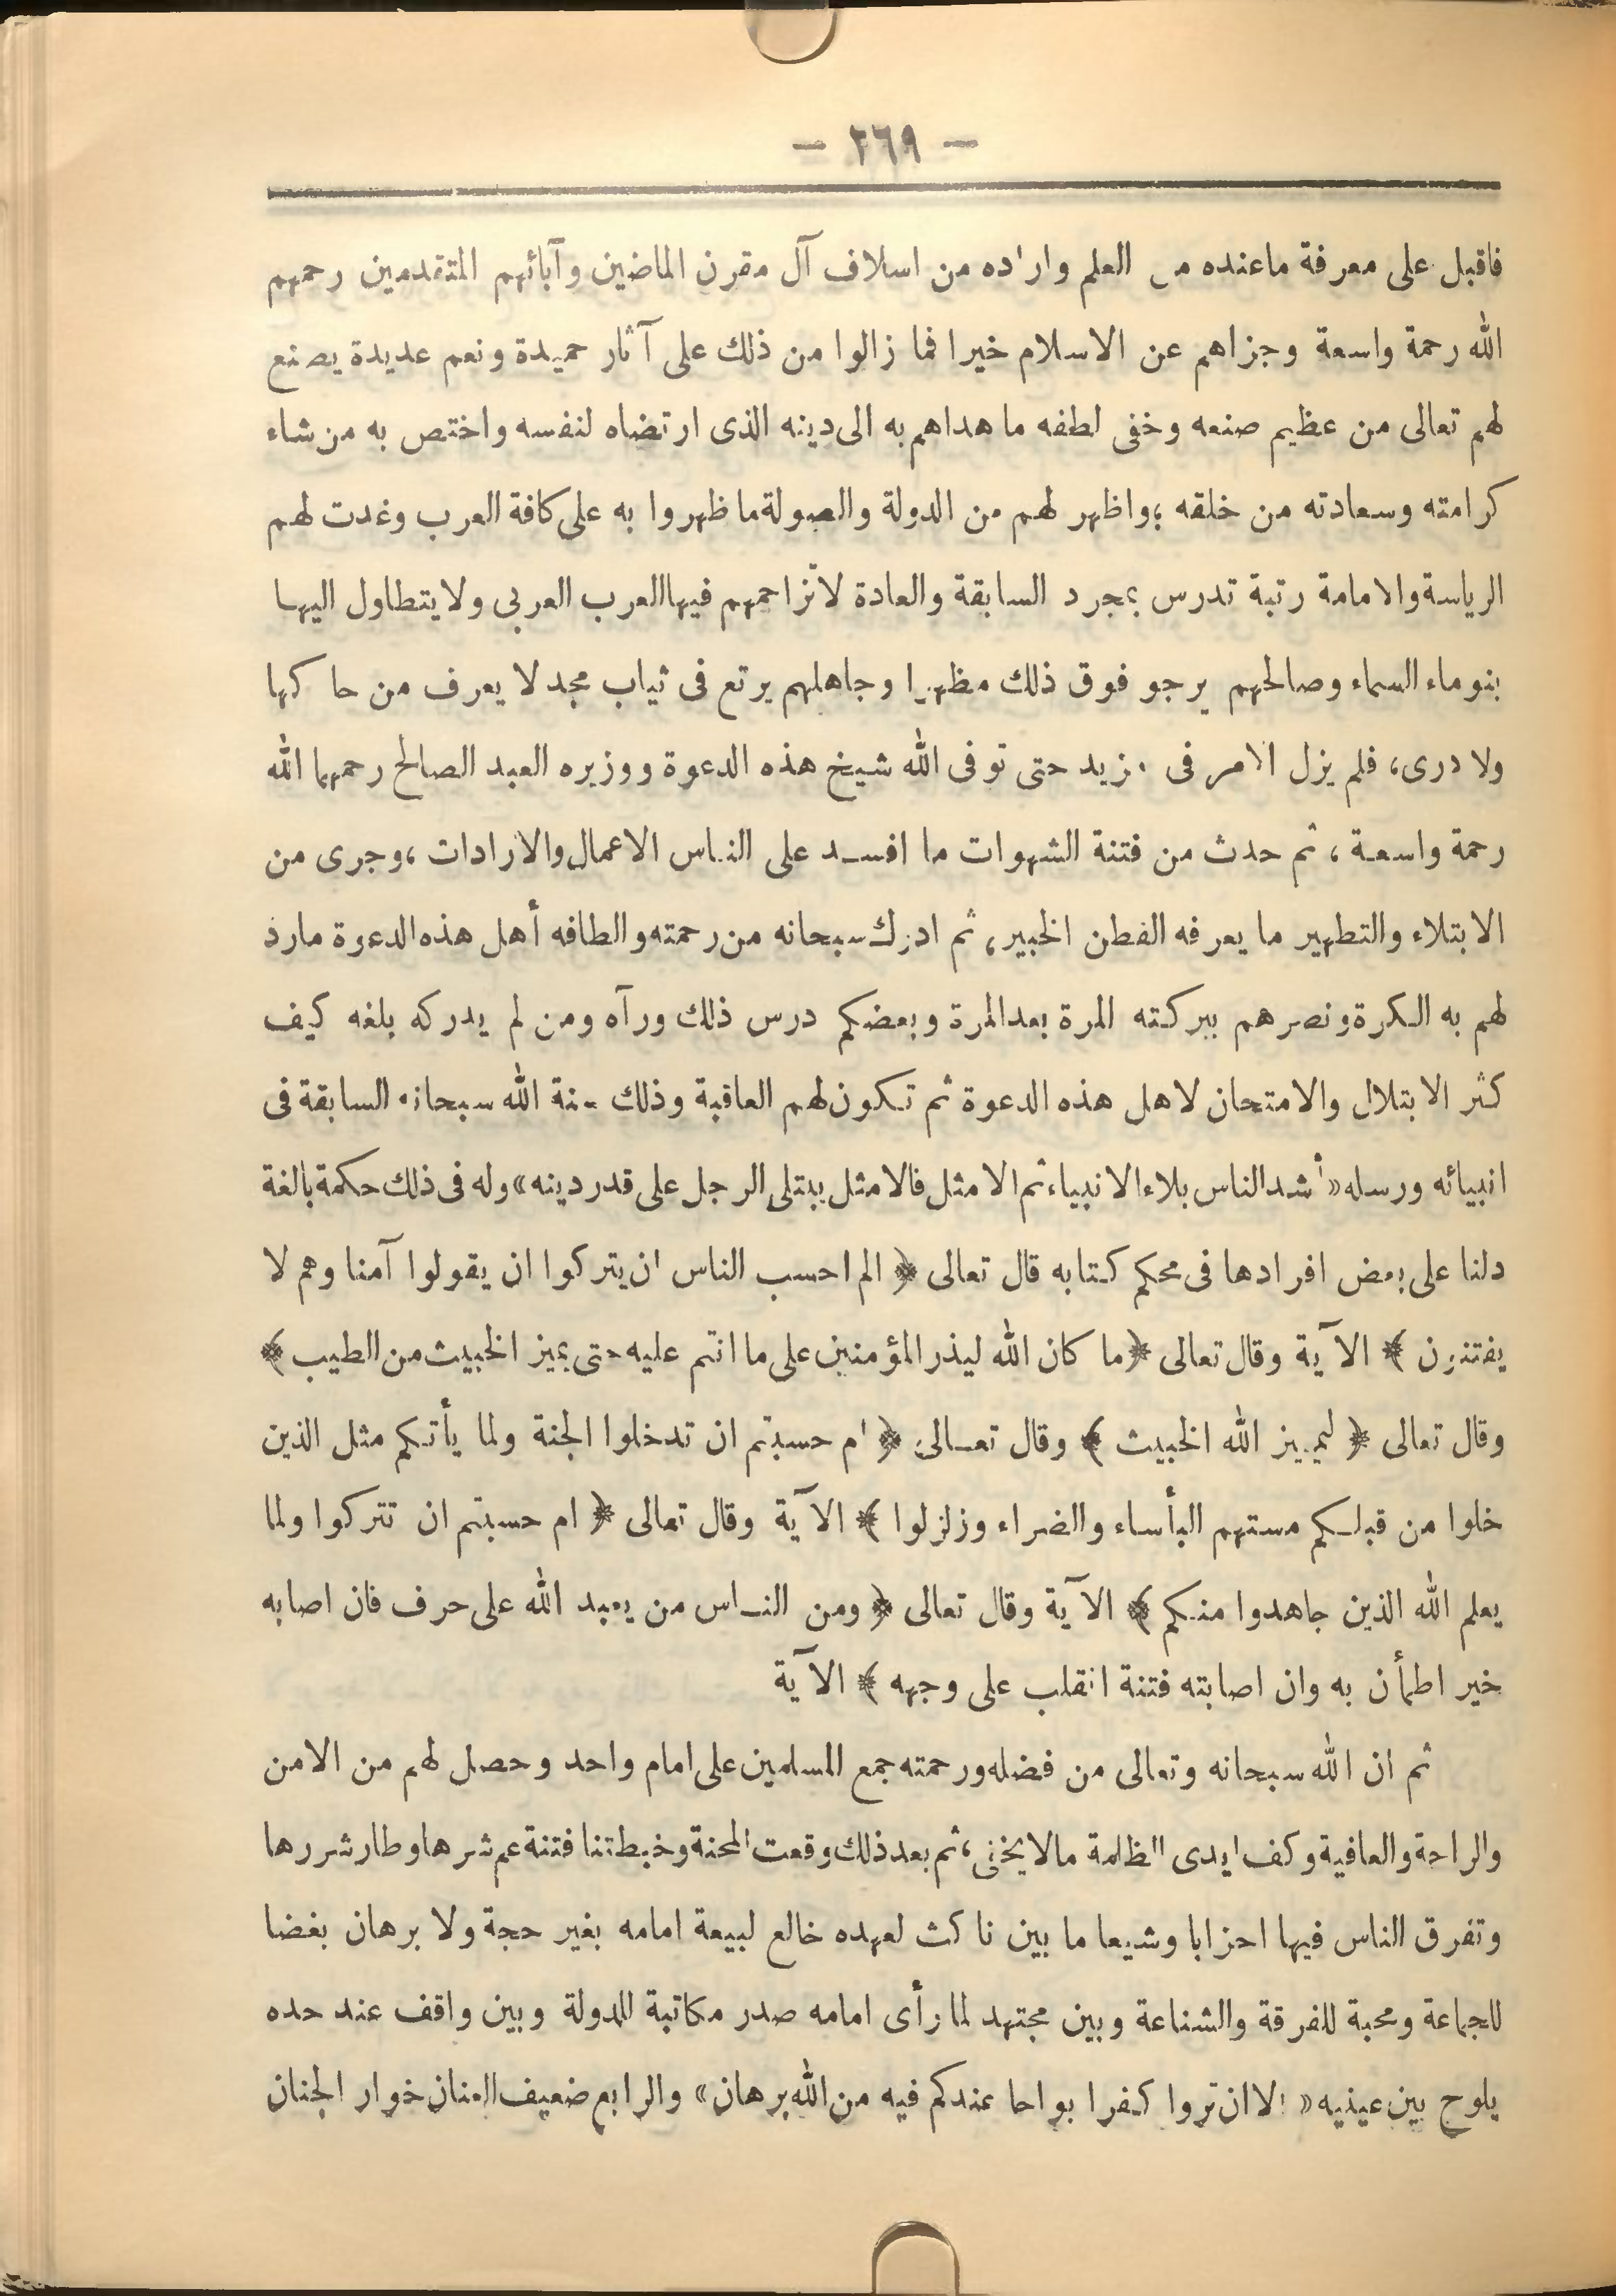 — ٢٦٩ —
فاقبل على معرفة ماعنده من العلم واراده من اسلاف آل مقرن الماضين وآبائهم المتقدمين رحمهم
الله رحمة واسعة وجزاهم عن الاسلام خيرا فما زالوا من ذلك على آثار حميدة ونعم عديدة يصنع
لهم تعالى من عظيم صنعه وخفى لطفه ما هداهم به الى دينه الذى ارتضاه لنفسه واختص به من شاء
كرامته وسعادته من خلقه ؛ واظهر لهم من الدولة والصولة ما ظهروا به على كافة العرب وغدت لهم
الرياسة والامامة رتبة تدرس بمجرد السابقة والعادة لاتزاحمهم فيها العرب العربى ولا يتطاول اليها
بنو ماء السماء وصالحهم يرجو فوق ذلك مظهرا وجاهلهم يرتع فى ثياب مجد لا يعرف من حاكها
ولا درى، فلم يزل الامر فى مزيد حتى توفى الله شيخ هذه الدعوة ووزيره العبد الصالح رحمهما الله
رحمة واسعة ، ثم حدث من فتنة الشهوات ما افسد على الناس الاعمال والارادات ، وجرى من
الابتلاء والتطهير ما يعرفه الفطن الخبير، ثم ادرك سبحانه من رحمته والطافه أهل هذه الدعوة مارد
لهم به الكرة ونصرهم ببركته المرة بعد المرة وبعضكم درس ذلك ورآه ومن لم يدركه بلغه كيف
كثر الابتلال والامتحان لاهل هذه الدعوة ثم تكون لهم العاقبة وذلك سنة الله سبحانه السابقة فى
انبيائه ورسله «أشد الناس بلاء الانبياء ثم الامثل فالامثل يبتلى الرجل على قدر دينه» وله فى ذلك حكمة بالغة
دلنا على بعض افرادها فى محكم كتابه قال تعالى ﴿ الم احسب الناس ان يتركوا ان يقولوا آمنا وهم لا
يفتنون ﴾ الآية وقال تعالى ﴿ما كان الله ليذر المؤمنين على ما انتم عليه حتى يميز الخبيث من الطيب ﴾
وقال تعالى ﴿ ليميز الله الخبيث ﴾ وقال تعالى ﴿ ام حسبتم ان تدخلوا الجنة ولما يأتكم مثل الذين
خلوا من قبلكم مستهم البأساء والضراء وزلزلوا ﴾ الآية وقال تعالى ﴿ ام حسبتم ان تتركوا ولما
يعلم الله الذين جاهدوا منكم ﴾ الآية وقال تعالى ﴿ ومن الناس من يعبد الله على حرف فان اصابه
خير اطمأن به وان اصابته فتنة انقلب على وجهه ﴾ الآية
ثم ان الله سبحانه وتعالى من فضله ورحمته جمع المسلمين على امام واحد وحصل لهم من الامن
والراحة والعافية وكف ايدى الظلمة مالا يخفى، ثم بعد ذلك وقعت المحنة وخبطتنا فتنة عم شرها وطار شررها
وتفرق الناس فيها احزابا وشيعا ما بين ناكث لعهده خالع لبيعة امامه بغير حجة ولا برهان بغضا
للجماعة ومحبة للفرقة والشناعة وبين مجتهد لما رأى امامه صدر مكاتبة للدولة وبين واقف عند حده
يلوح بين عينيه « الا ان تروا كفرا بواحا عندكم فيه من الله برهان» والرابع ضعيف العنان خوار الجنان